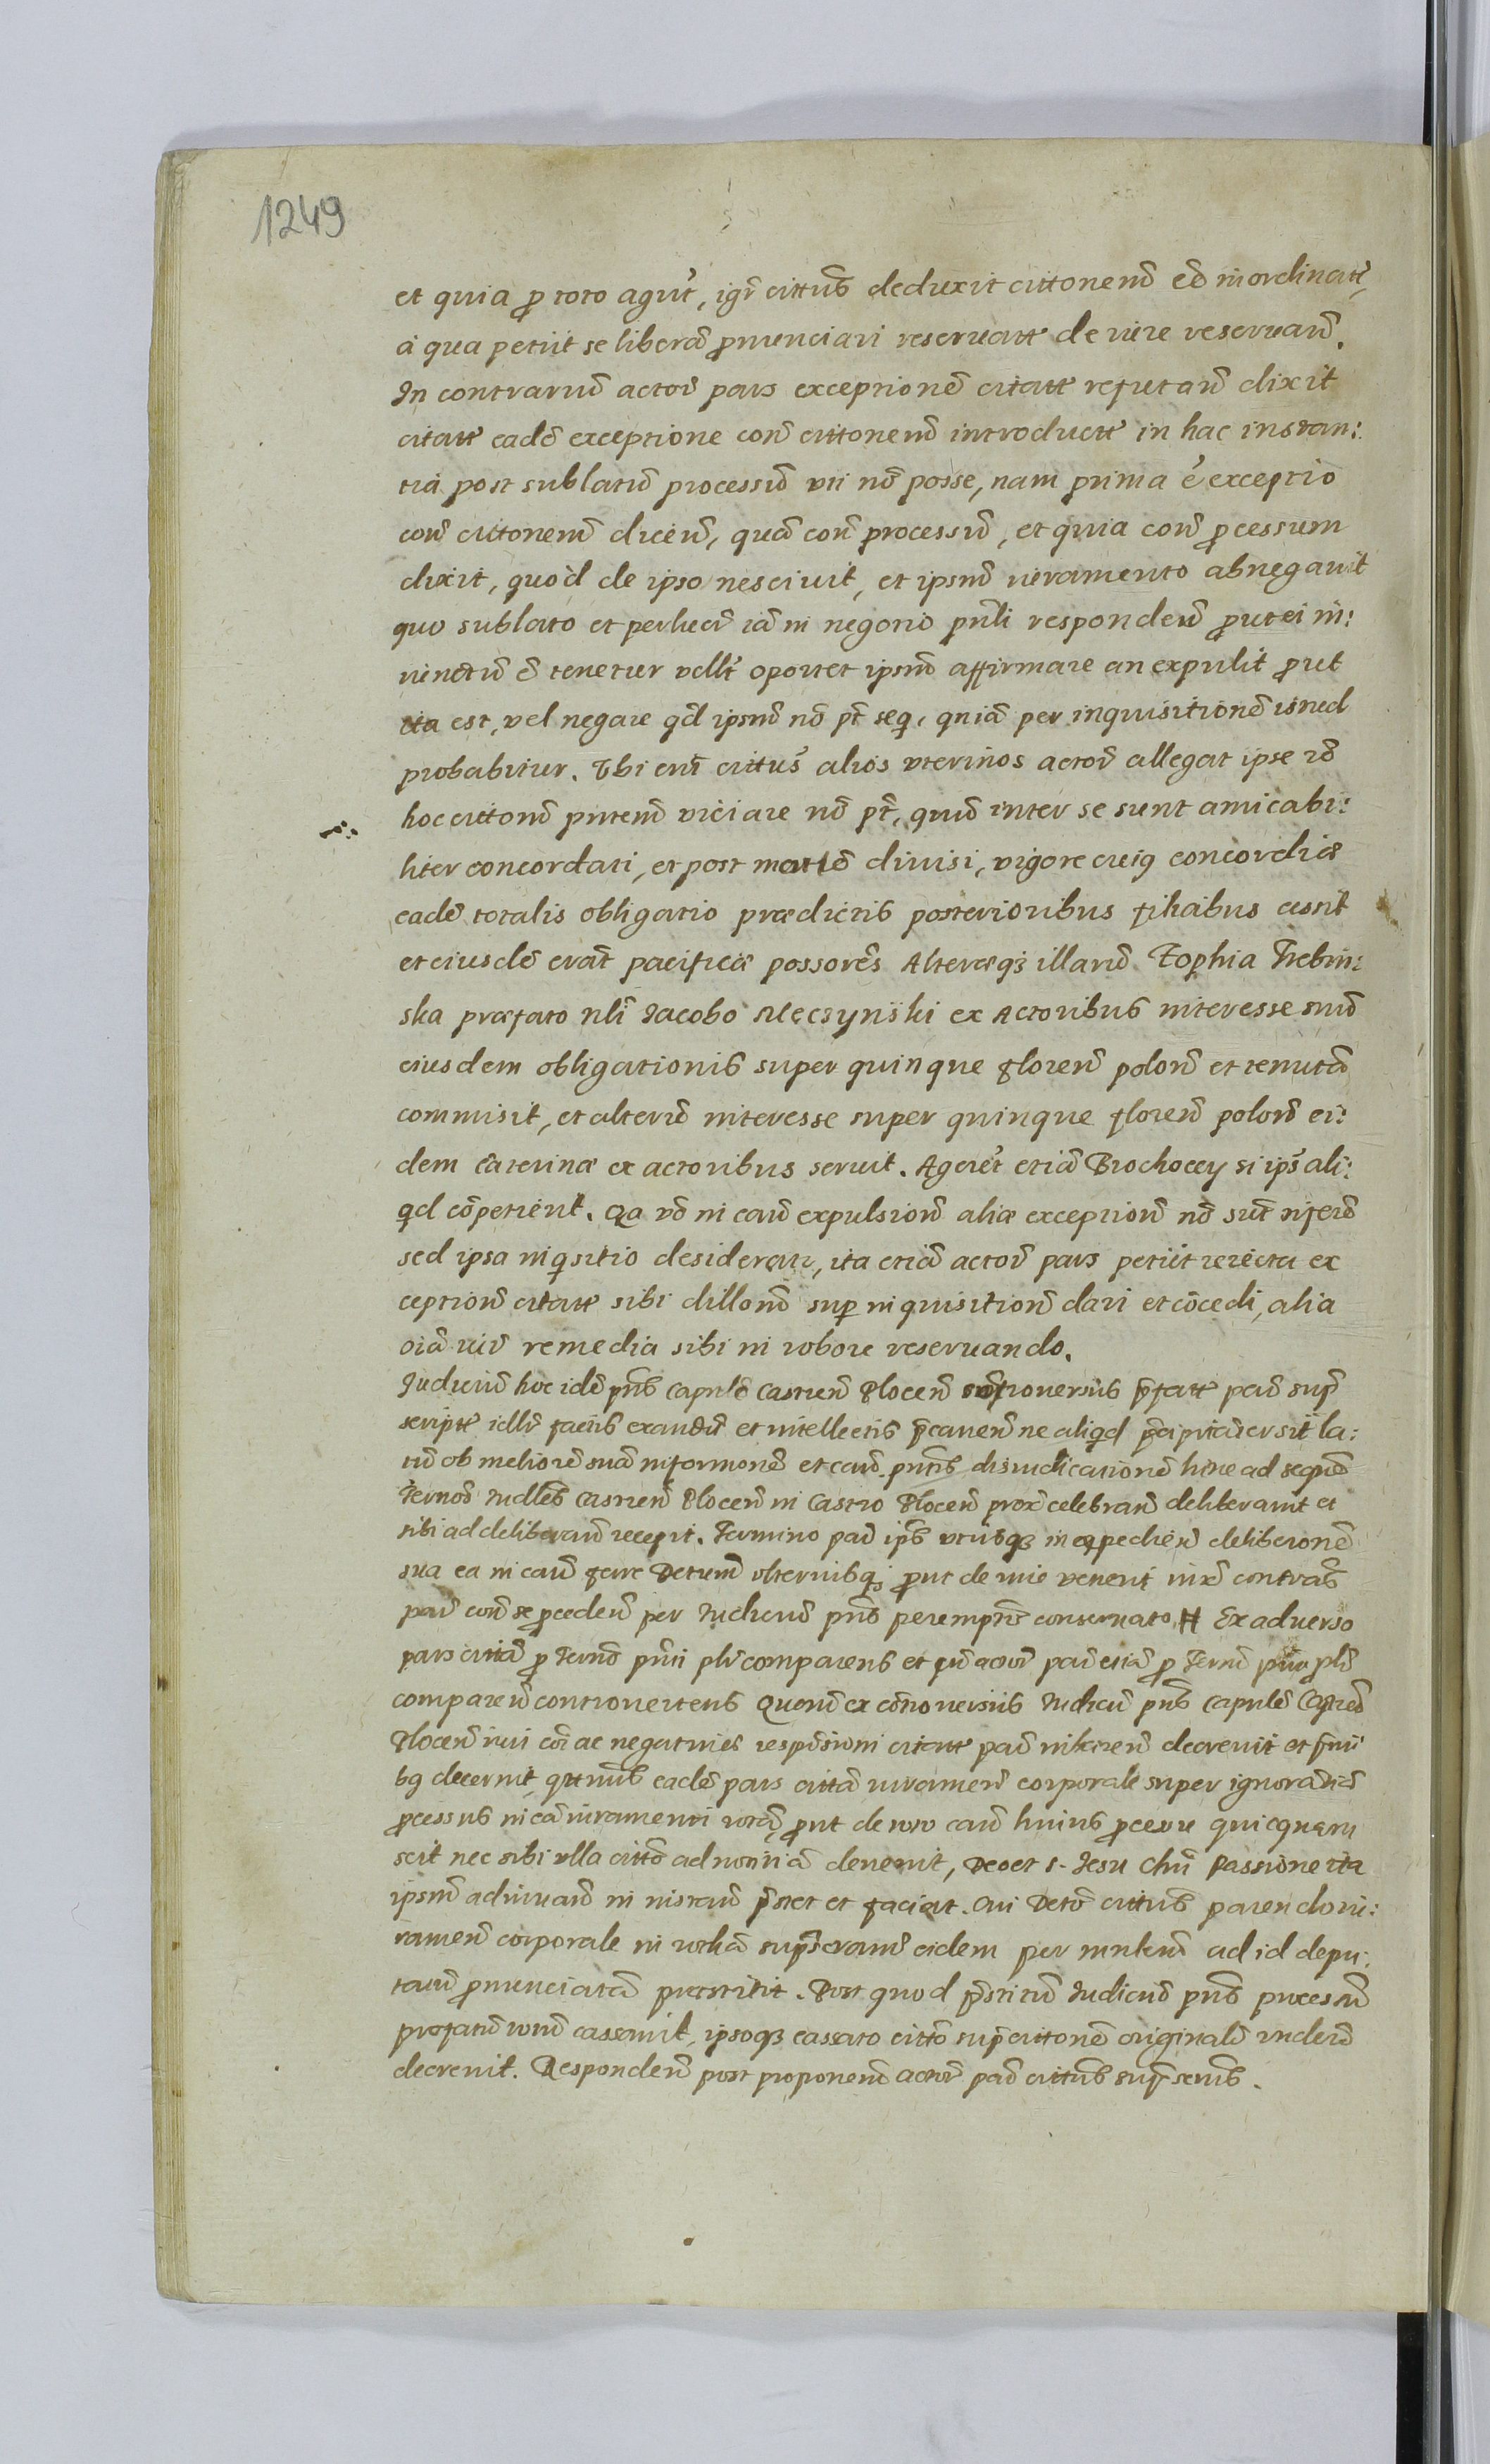 1249
et quia p̄ toto agūt, igr̄ citt̄us deduxit cittonem̄ eē inordinatt̄,
à qua petiit se liberā pronunciari reseruatt̄ de iure reseruan̄.
In contrariū actor̄ pars exceptionē citatt̄ refutan̄ dixit
citatt̄ eadē exceptione con̄ cittonem̄ introductt̄ in hac instan:
tia post sublatū processū vti nō posse, nam prima ē exceptio
con̄ cittonem̄ dicen̄, quā con̄ processū, et quia con̄ p̄cessum
dixit, quòd de ipso nesciuit, et ipsum̄ iuramento abnegauit
quo sublato et perluen̄ iā in negotio pn̄li responden̄ prout ei in:
iunctū ē tenetur vellt̄ oportet ipsum̄ affirmare an expulit prout
ita est, vel negare qd̄ ipsum̄ nō pt̄ seq̄, quiā per inquisitionē istud
probabitur. Vbi em̄ citt̄us alios vterinos actor̄ allegat ipse iō
hoc cittonē pntem̄ viciare nō pt̄, quiō inter se sunt amicabi:
liter concordati, et post divisi, vigore cuiq̄ concordiæ
eadē totalis obligatio prædictis posterioribus filiabus cessit
et eiusdē erāt pacificæ possorēs Alteraq̨ illarū Zophia Trebin:
ska præfato Nli Jacobo Męczyński ex Actoribus interesse suū
eiusdem obligationis super quinque floren̄ polon̄ et tenutā
commisit, et alteriō interesse super quinque floren̄ polon̄ ei:
dem Caterinæ ex actoribus seruit. Agerēt etiā Brochoccy si ips̄ ali:
qd cōpetierit. Qa vō in cau̅ expulsion̄ aliæ exception̄ nō sūt inferē
sed ipsa inq̄sitio desideratr, ita etiā actor̄ pars petiit reiecta ex
ception̄ citatt̄ sibi dillonē sup̄ inquisition̄ dari et cōcedi, alia
oīa iur̄ remedia sibi in robore reseruando.
Judiciū hoc idē pn̄s Capnlē Castren̄ Plocen̄ controuersiis p̄fatt̄ par̄ sup̄
scriptt̄ illr̄ factis exaudit̄ et intellectis p̄cauen̄ ne aliqd p̄cipitāter sit la:
tū ob meliorē suā informonē et cau̅ pntis disiudicationē hinc ad sequē
Termō Iudlēs Castren̄ Plocen̄ in Castro Plocen̄ prox̄ celebran̄ deliberauit et
sibi ad deliberan̄ recepit. Termino par̄ ips̄ vtrisq̨ in expedien̄ deliberonē
sua ea in cau̅ ferre Detum̄ vlteriusq̨ prout de iure venerit iux̄ contrās
par̄ con̄ se p̄ceden̄ per Iudiciū pn̄s peremptē conseruato. H Ex aduerso
pars cittā p̄ Termō pn̄ti plr̄ comparens et cū actor̄ par̄ etiā p̄ Termō pn̄to plr̄
comparen̄ controuertens Quorū ex cōtrouersiis Iudiciū pn̄s Capnlē Castren̄
Plocen̄ iuri cōi ac negatiuies respōsioni citatt̄ par̄ inheren̄ decreuit et p̄nti
bq̄ decernit, qtnus eadē pars cittā iuramen̄ corporale super ignorantia
p̄cessus in eā iuramenti rotā, prout de toto cau̅ huius p̄cessu quicquam
scit nec sibi vlla cittō ad notitiā deuenit, Deo et S. Iesu Chri Passione ita
ipsum̄ adiuuan̄ in instan̄ p̄stet et faciat. Cui Detō citt̄us parendo iu:
ramen̄ corporale in rotā eidem per ad id depu:
tatū p̄nunciatā præstitit. Post quod p̄stitū Iudiciū pn̄s processū
præfatū totū cassauit, ipsoq̨ cassato cittō sup̄ cittonē originalē
decreuit. Responden̄ post proponem̄ actor̄ par̄ citt̄us